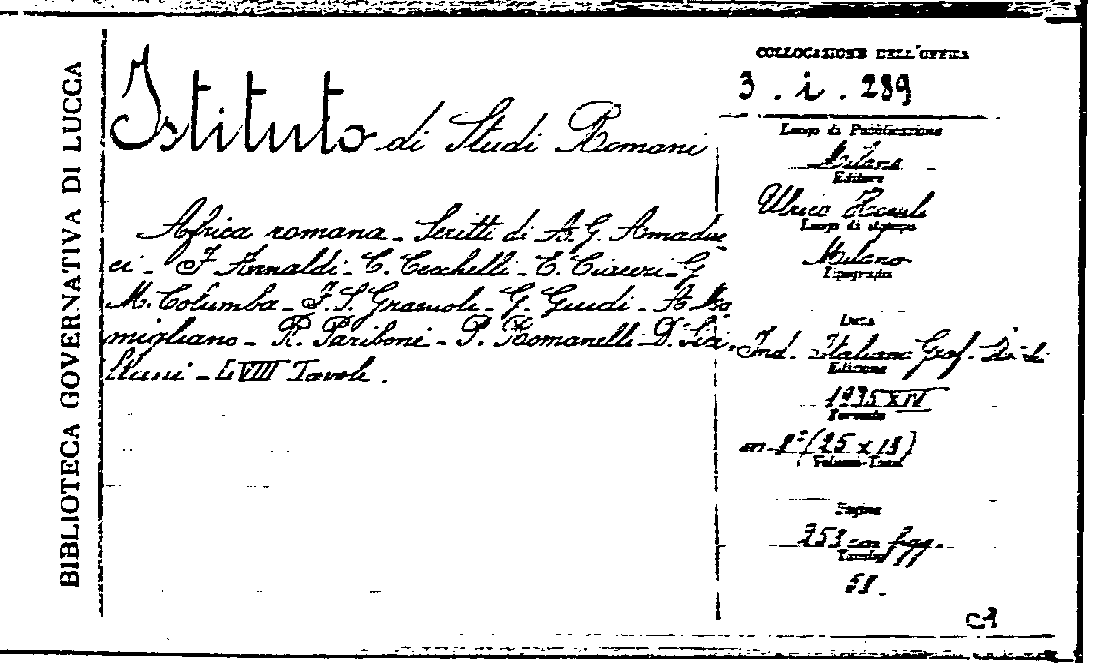 BIBLIOTECA GOVERNATIVA DI LUCCA
Istituto di Studi Romani
Africa romana - Scritti di A. G. Amaduc
ci - F. Arnaldi - C. Cecchelli - E. Ciaceri - G
M. Columba - F. S. Grazioli - G. Guidi - A. Mo
migliano - R. Paribeni - P. Romanelli - D.
LVIII Tavole.
COLLOCAZIONE DELL'OPERA
3 . i . 289
Luogo di Pubblicazione
Milano
Editore
Ulrico Hoepli
Luogo di stampa
Milano
Tipografia
Data
Ind. Italiana Graf.
Edizione
1935 XIV
Formato
in-8° (25 x 18)
Pagine
253 con figg.
Tavole
58.